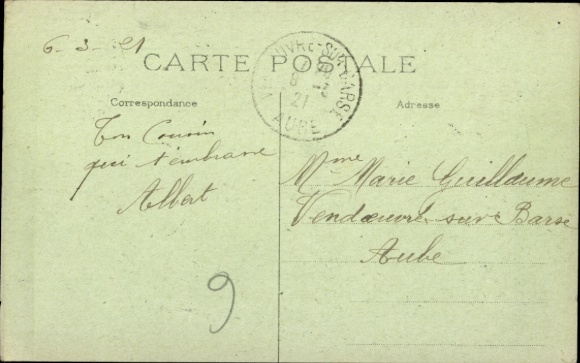 6-3-21
CARTE POSTALE
VENDEUVRE-SUR-BARSE
8-3
21
AUBE
Correspondance
Adresse
Ton Cousin
qui t'embrasse
Albert
Mme Marie Guillaume
Vendœuvre sur Barse
Aube
9